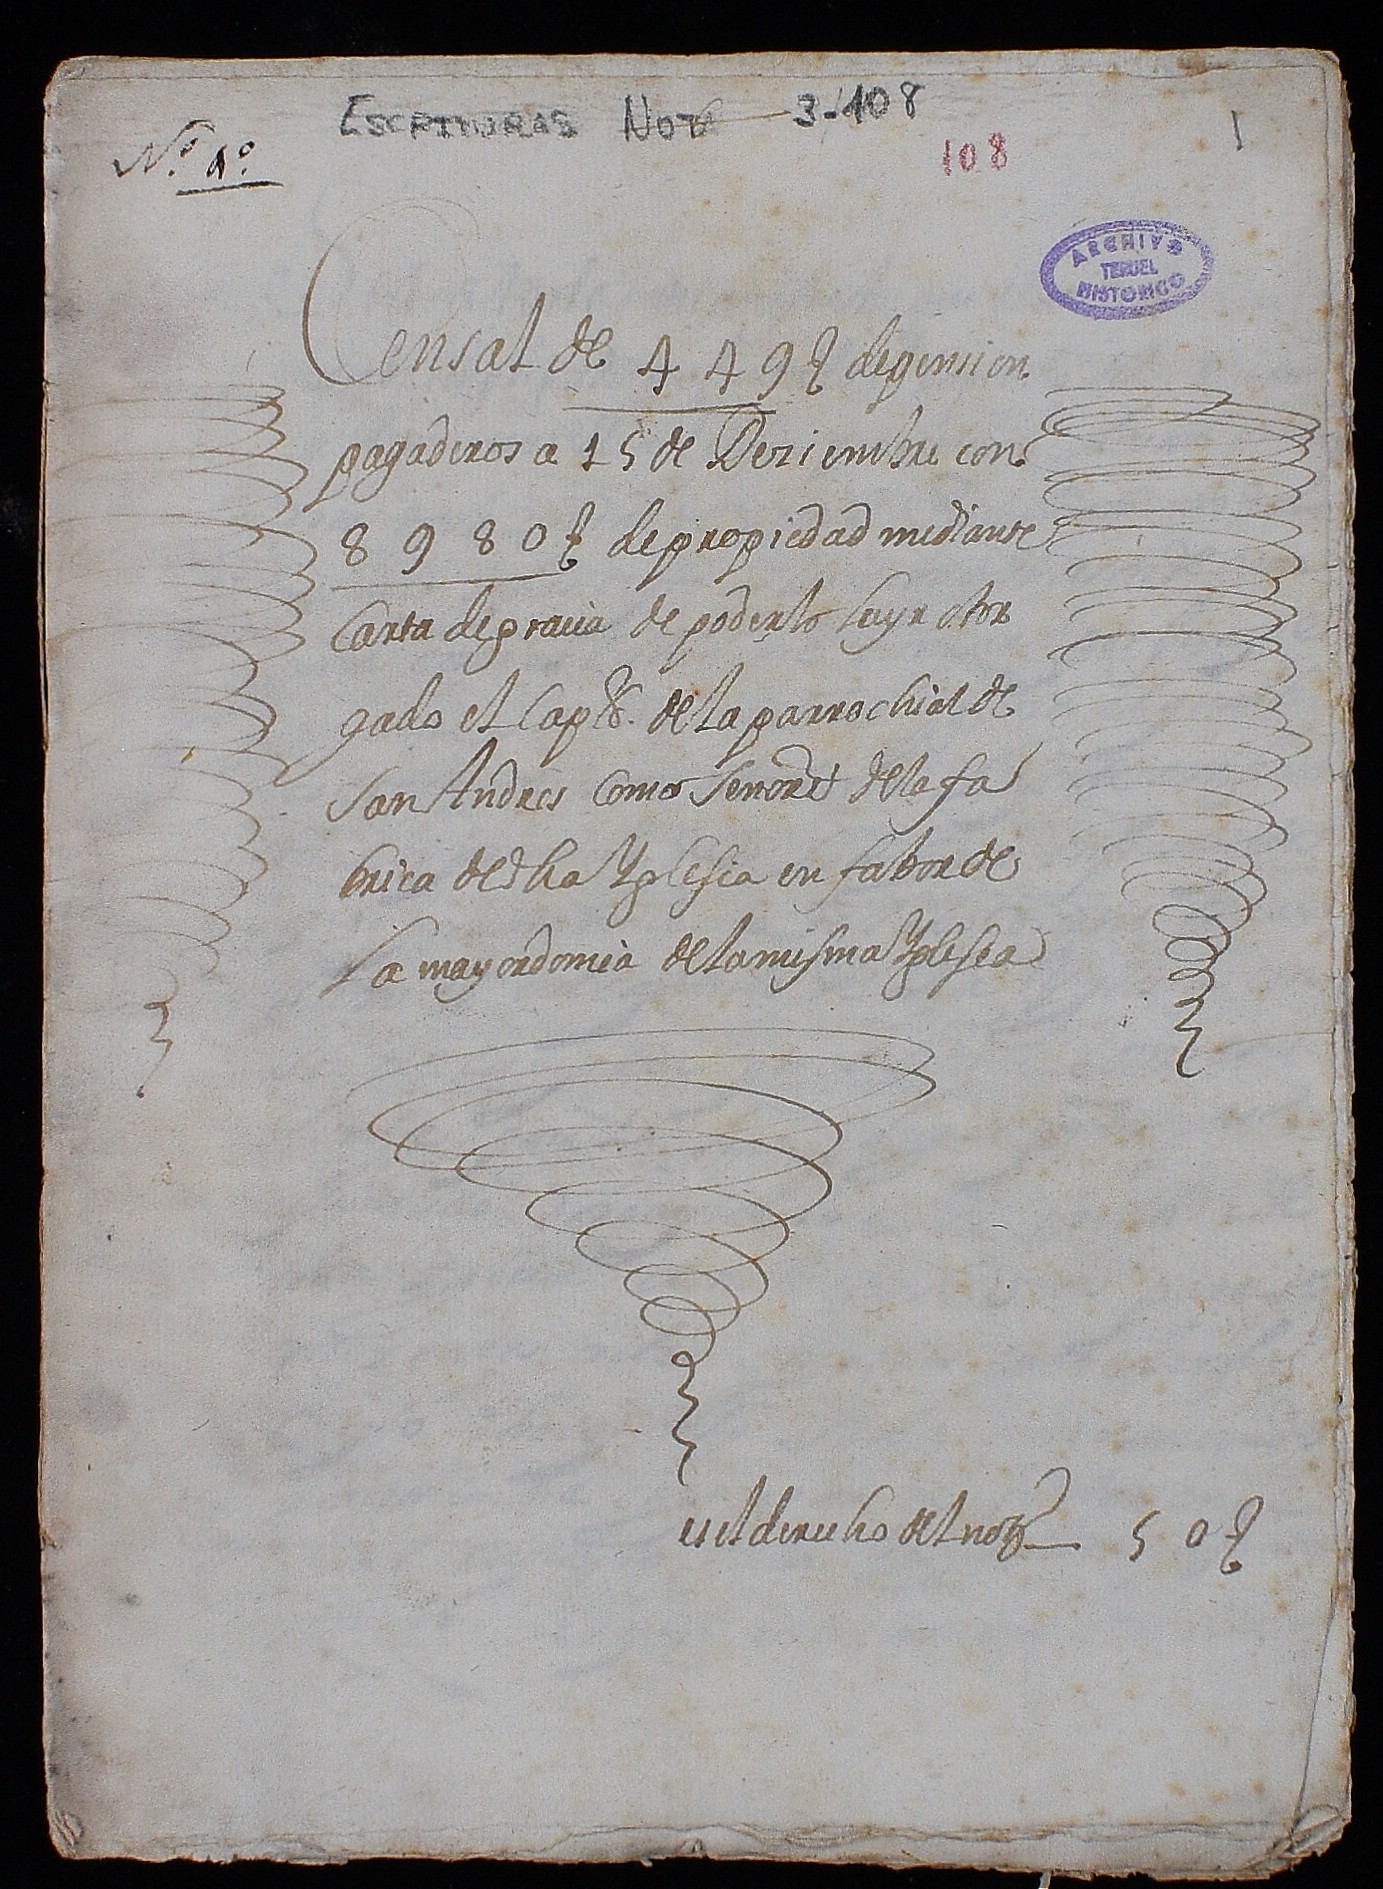 ESCRITURAS NOT 3-108
N.º 1º
108
1
ARCHIVO
TERUEL
HISTORICO
Censal de 449 ʃ de pension
pagaderos a 15 de Deziembre con
8980 ʃ de propiedad mediante
Carta de gracia de poderlo luyr otor
gado el Capº. de la parrochial de
San Andres como Señores de la fa
brica de dha Yglesia en fabor de
La mayordomia de la misma Yglesia
es el derecho del noto 50 ʃ